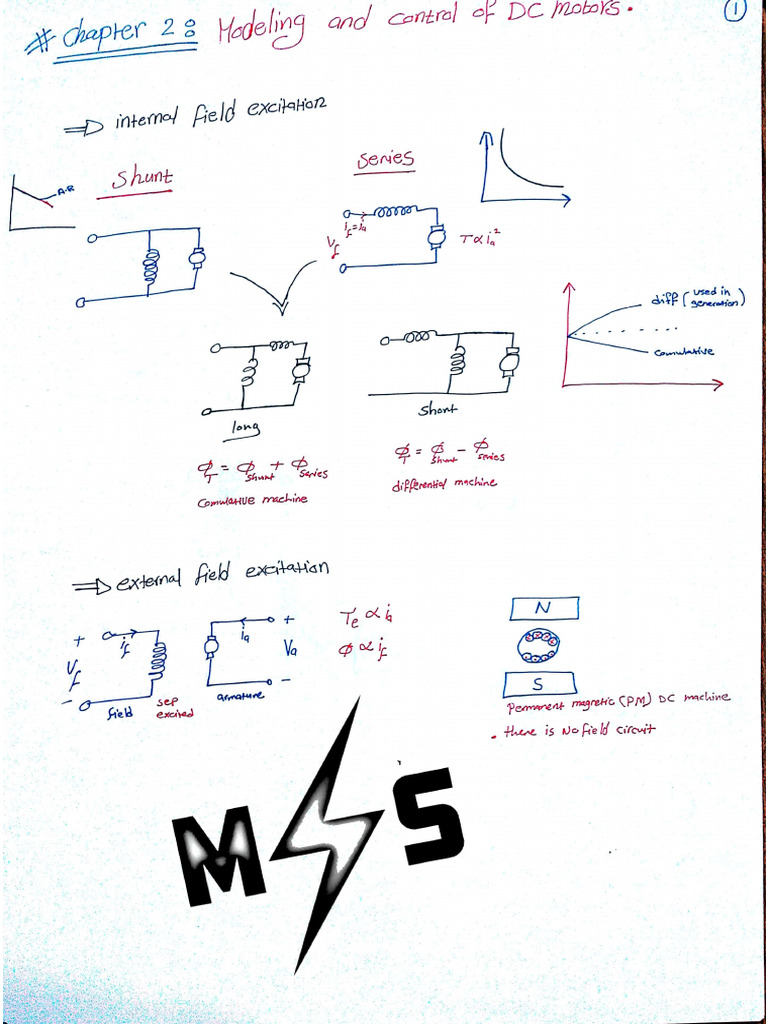 # Chapter 2: Modeling and control of DC motors.
1
⇒ internal field excitation
shunt
A.R
series
i_f = i_a
V_f
T ∝ i_a²
diff (used in generation)
comulative
long
short
Φ_T = Φ_shunt + Φ_series
Comulative machine
Φ_T = Φ_shunt - Φ_series
differential machine
⇒ external field excitation
+
V_f
-
i_f
field
sep excited
i_a
armature
+
V_a
-
T_e ∝ i_a
Φ ∝ i_f
N
S
Permanent magnetic (PM) DC machine
. there is No field circuit
M S